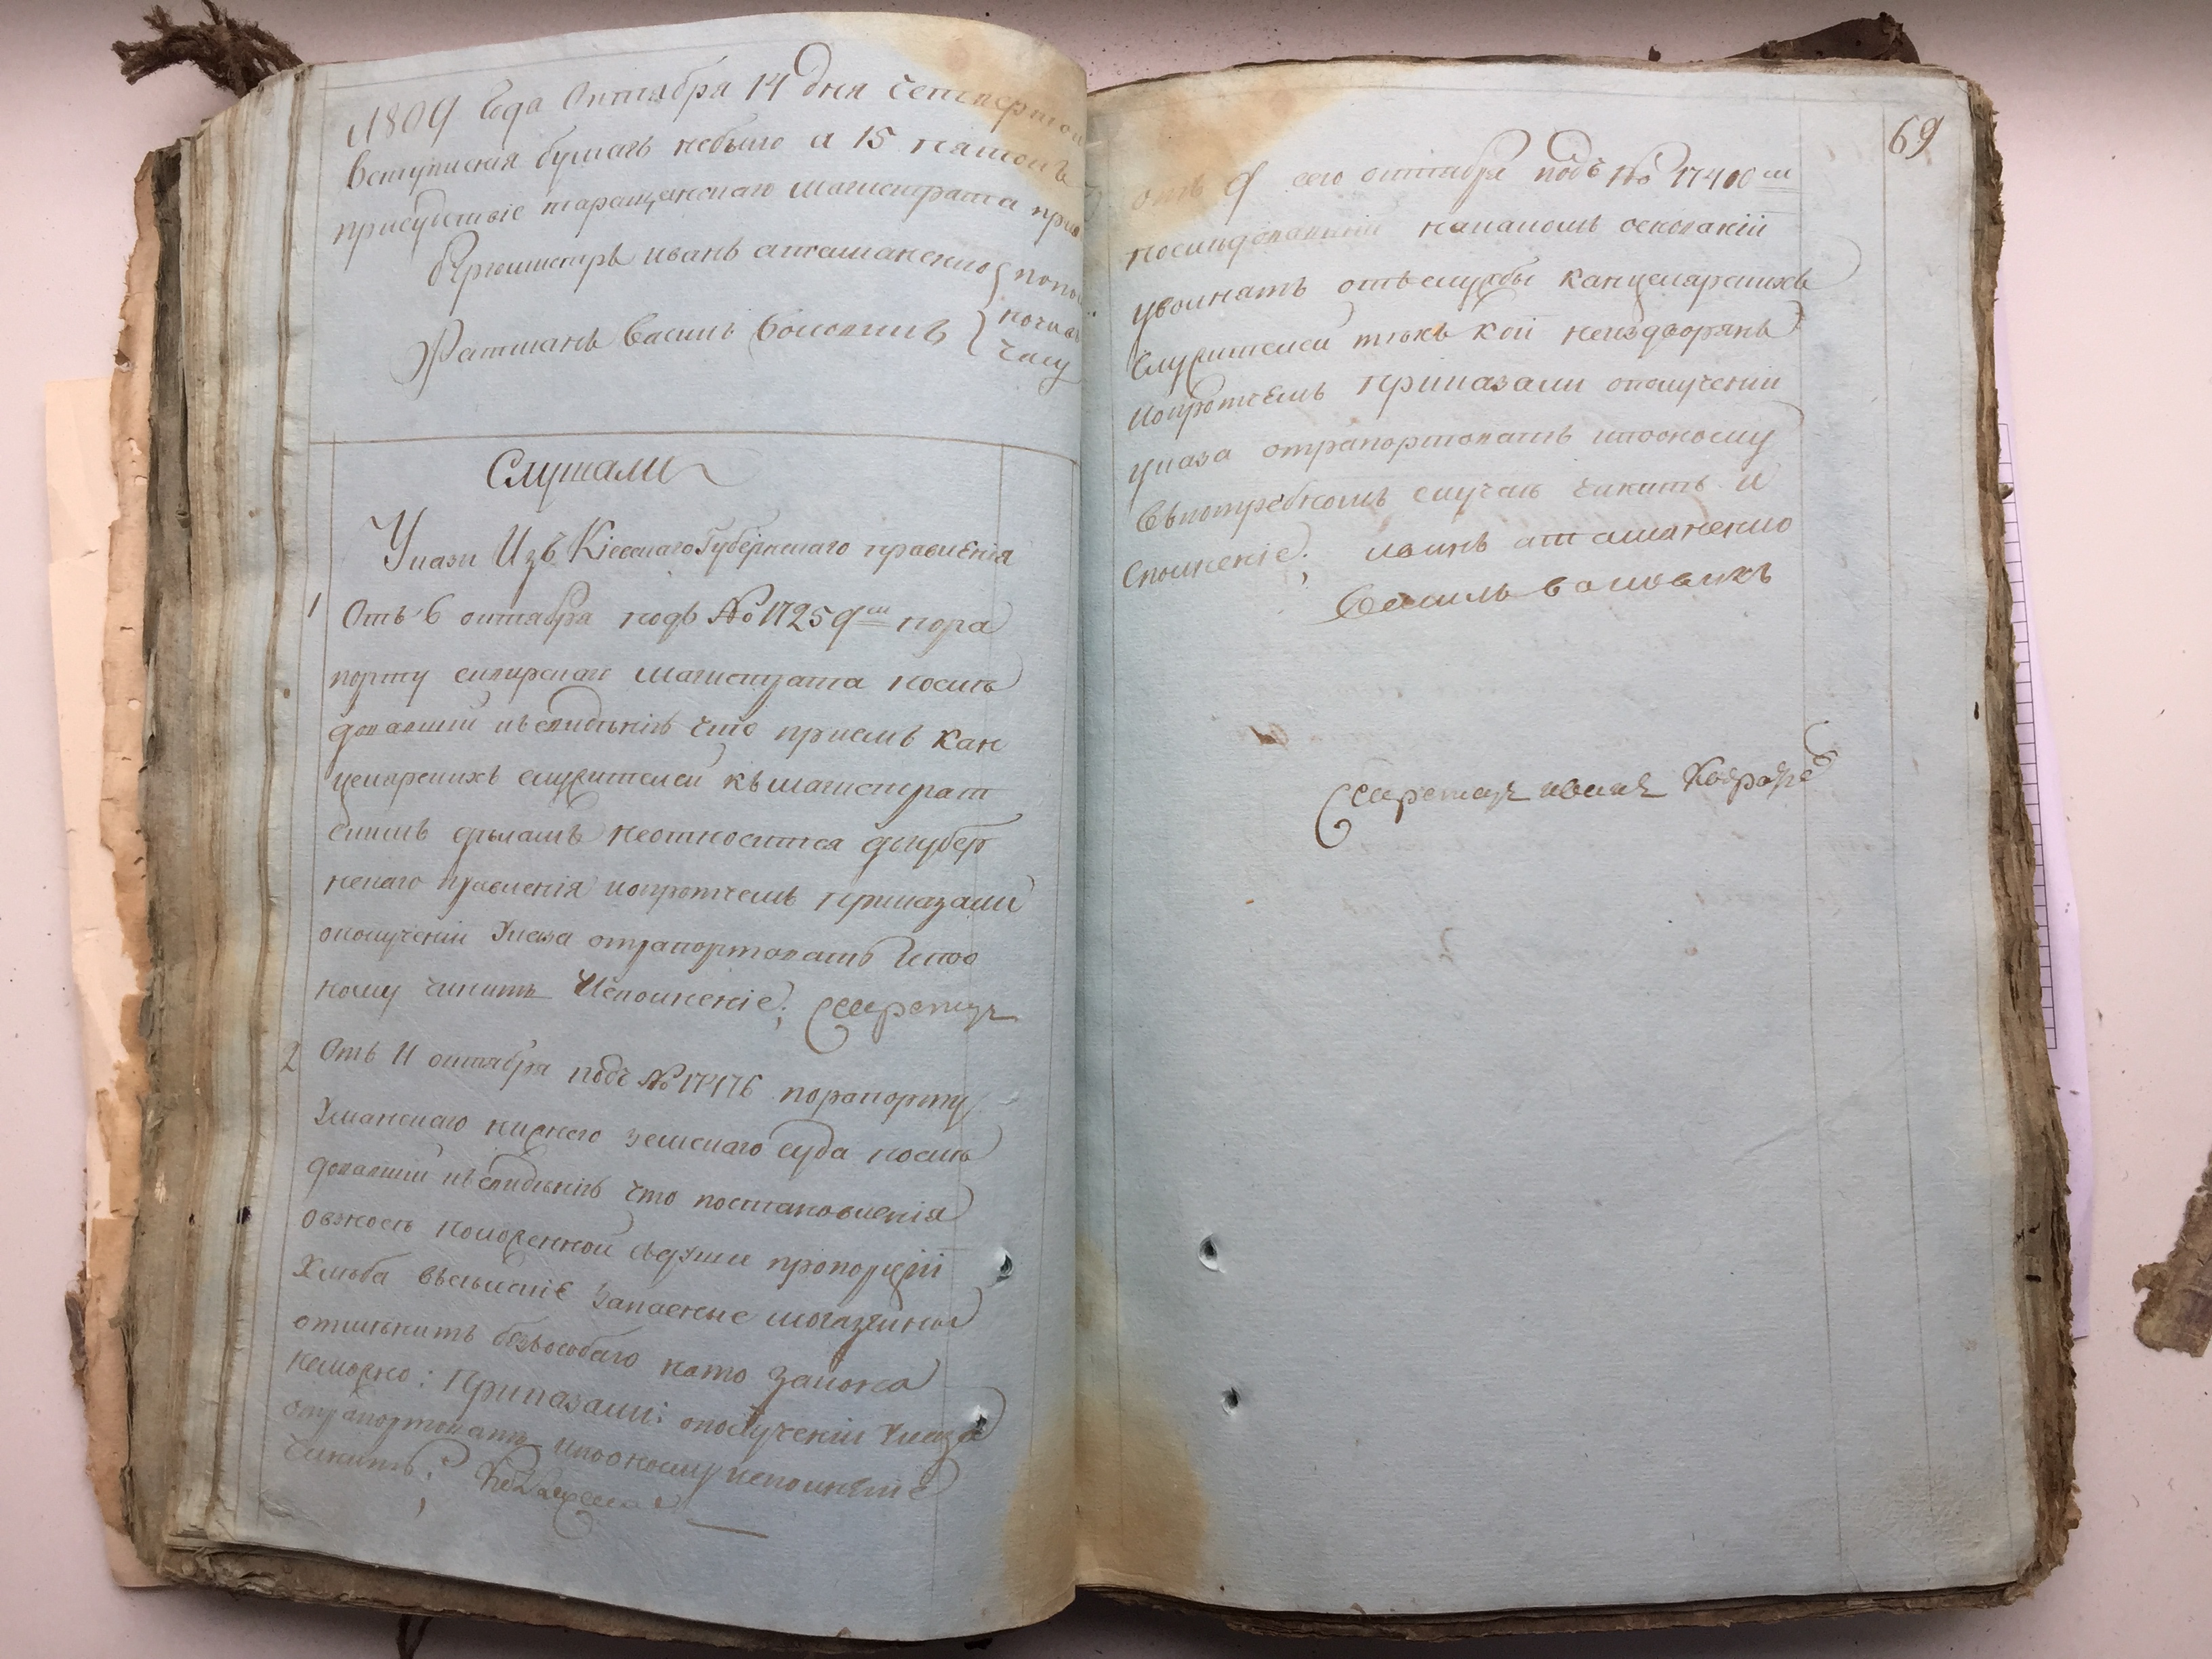 1809 Года Октября 14 дня Четверток
вступиския бумагъ небыло а 15 пятокъ
присудствіе таращанскаго магистрата при
бургомистръ иванъ аташаненко
Ратманъ василь воловикъ
часу
Слушали
Указы Изъ Кіевскаго Губернскаго правленія
1 Отъ 6 октября подъ № 17259м пора
порту сквирскаго магистрата послѣ
довавшій въ свидѣніе что пріемъ кан
целярскихъ служителей къ магистрат
скимъ дѣламъ неотносится догубер
нскаго правленія попротчемъ приказали
ополученіи Указа отрапортовать ипоо
ному чинить Исполненіе; Секретарь
2 Отъ 11 октября подъ № 17476 порапорту
Уманскаго нижнего земскаго суда послѣ
довавшій въ свидѣніе что постановленія
овзносѣ положенной съдуши пропорціи
Хлѣба въсельскіе запасные могазейны
отмѣнить безъособаго нато закона
неможно: Приказали: ополученіи Указа
отрапортовать ипооному исполненіе
чинить;
69
отъ 9 сего октября подъ № 17400м
послѣдовавшій накаковъ основаніи
увольнять отъслужбы канцелярскихъ
Служителей тѣхъ кои неиздворянъ
попротчемъ приказали ополученіи
указа отрапортовать ипооному
въпотребномъ случаѣ чинить и
сполненіе; иванъ аташаненко
василь воловикъ
Секретарь иванъ